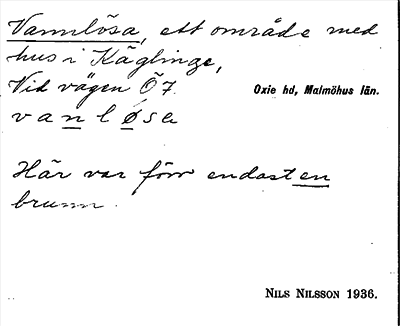 Vannlösa, ett område med
hus i Käglinge,
Vid vägen Ö 7.
Oxie hd, Malmöhus län.
v a n l ø s a
Här var förr endast en
brunn.
NILS NILSSON 1936.